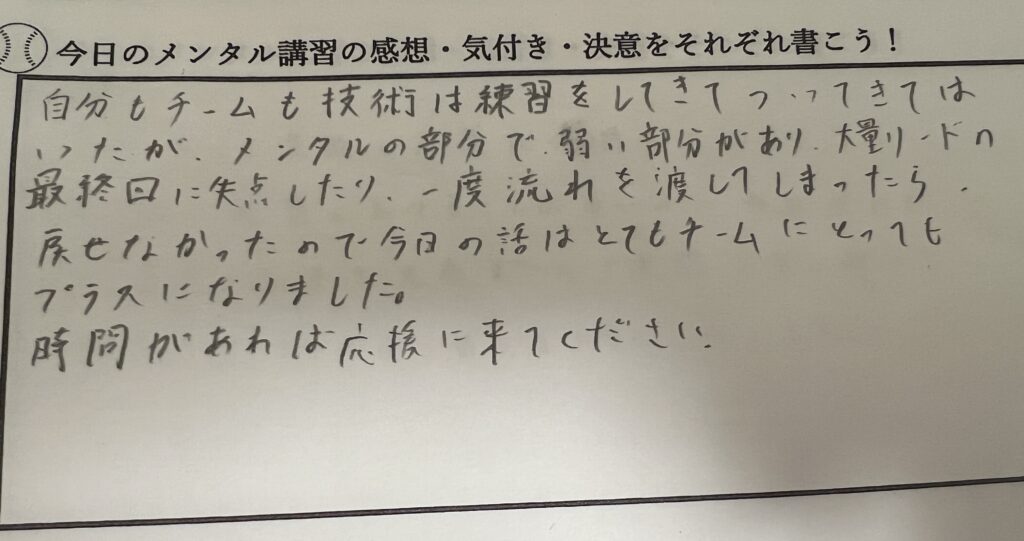 今日のメンタル講習の感想・気付き・決意をそれぞれ書こう！
自分もチームも技術は練習をしてきてついってきては
いたが、メンタルの部分で、弱い部分があり、大量リードの
最終回に失点したり、一度流れを渡してしまったら、
戻せなかったので今日の話はとてもチームにとっても
プラスになりました。
時間があれは応援に来てください。